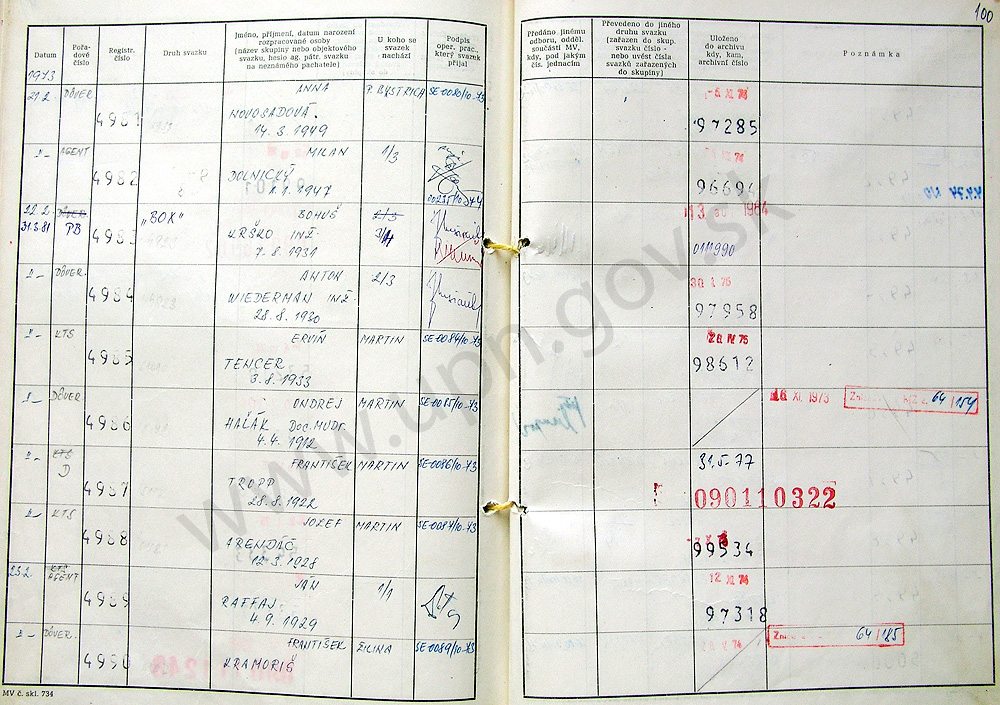 100
Datum
Pořa-
dové
číslo
Registr.
číslo
Druh svazku
Jméno, příjmení, datum narození
rozpracované osoby
(název skupiny nebo objektového
svazku, heslo ag. pátr. svazku
na neznámého pachatele)
U koho se
svazek
nachází
Podpis
oper. prac.,
který svazek
přijal
Předáno jinému
odboru, odděl.
součásti MV,
kdy, pod jakým
čís. jednacím
Převedeno do jiného
druhu svazku
(zařazen do skup.
svazku číslo -
nebo uvést čísla
svazků zařazených
do skupiny)
Uloženo
do archivu
kdy, kam,
archivní číslo
Poznámka
1973
21.2. DÔVER. ANNA P. BYSTRICA SE-0080/10-73
4981 NOVOSADOVÁ. 97285
14. 3. 1949
AGENT MILAN 1/3 74
4982 DOLNICKÝ
1.1.1947
22.2. „BOX" BOHUŠ 2/3
31.3.81 PB KRŠKO INŽ. 3/4
4983 7. 8. 1931 011990
-"- DÔVER. ANTON 2/3
4984 WIEDERMAN INŽ. 97958
28.8.1930
-"- KTS ERVÍN MARTIN SE-0084/10-73
4985 TENCER 98612
3.8.1933
-"- DÔVER. ONDREJ MARTIN SE-0085/10-73 XI. 1973 64/154
4986 HAĽÁK Doc. MUDr.
4.4.1912
-"- KTS FRANTIŠEK MARTIN SE-0086/10-73 31.5.77
D
4987 TROPP 090110322
28.8.1922
-"- KTS JOZEF MARTIN SE-0087/10-73
4988 ARENDÁČ 99534
12.3.1928
23.2. KTS JÁN 1/1 12 XI 74
AGENT
4989 RAFFAJ. 97318
4.9.1929
-"- DÔVER. FRANTIŠEK ŽILINA SE-0089/10-73 64/185
4990 KRAMORIŠ
MV č. skl. 734
www.upn.gov.sk